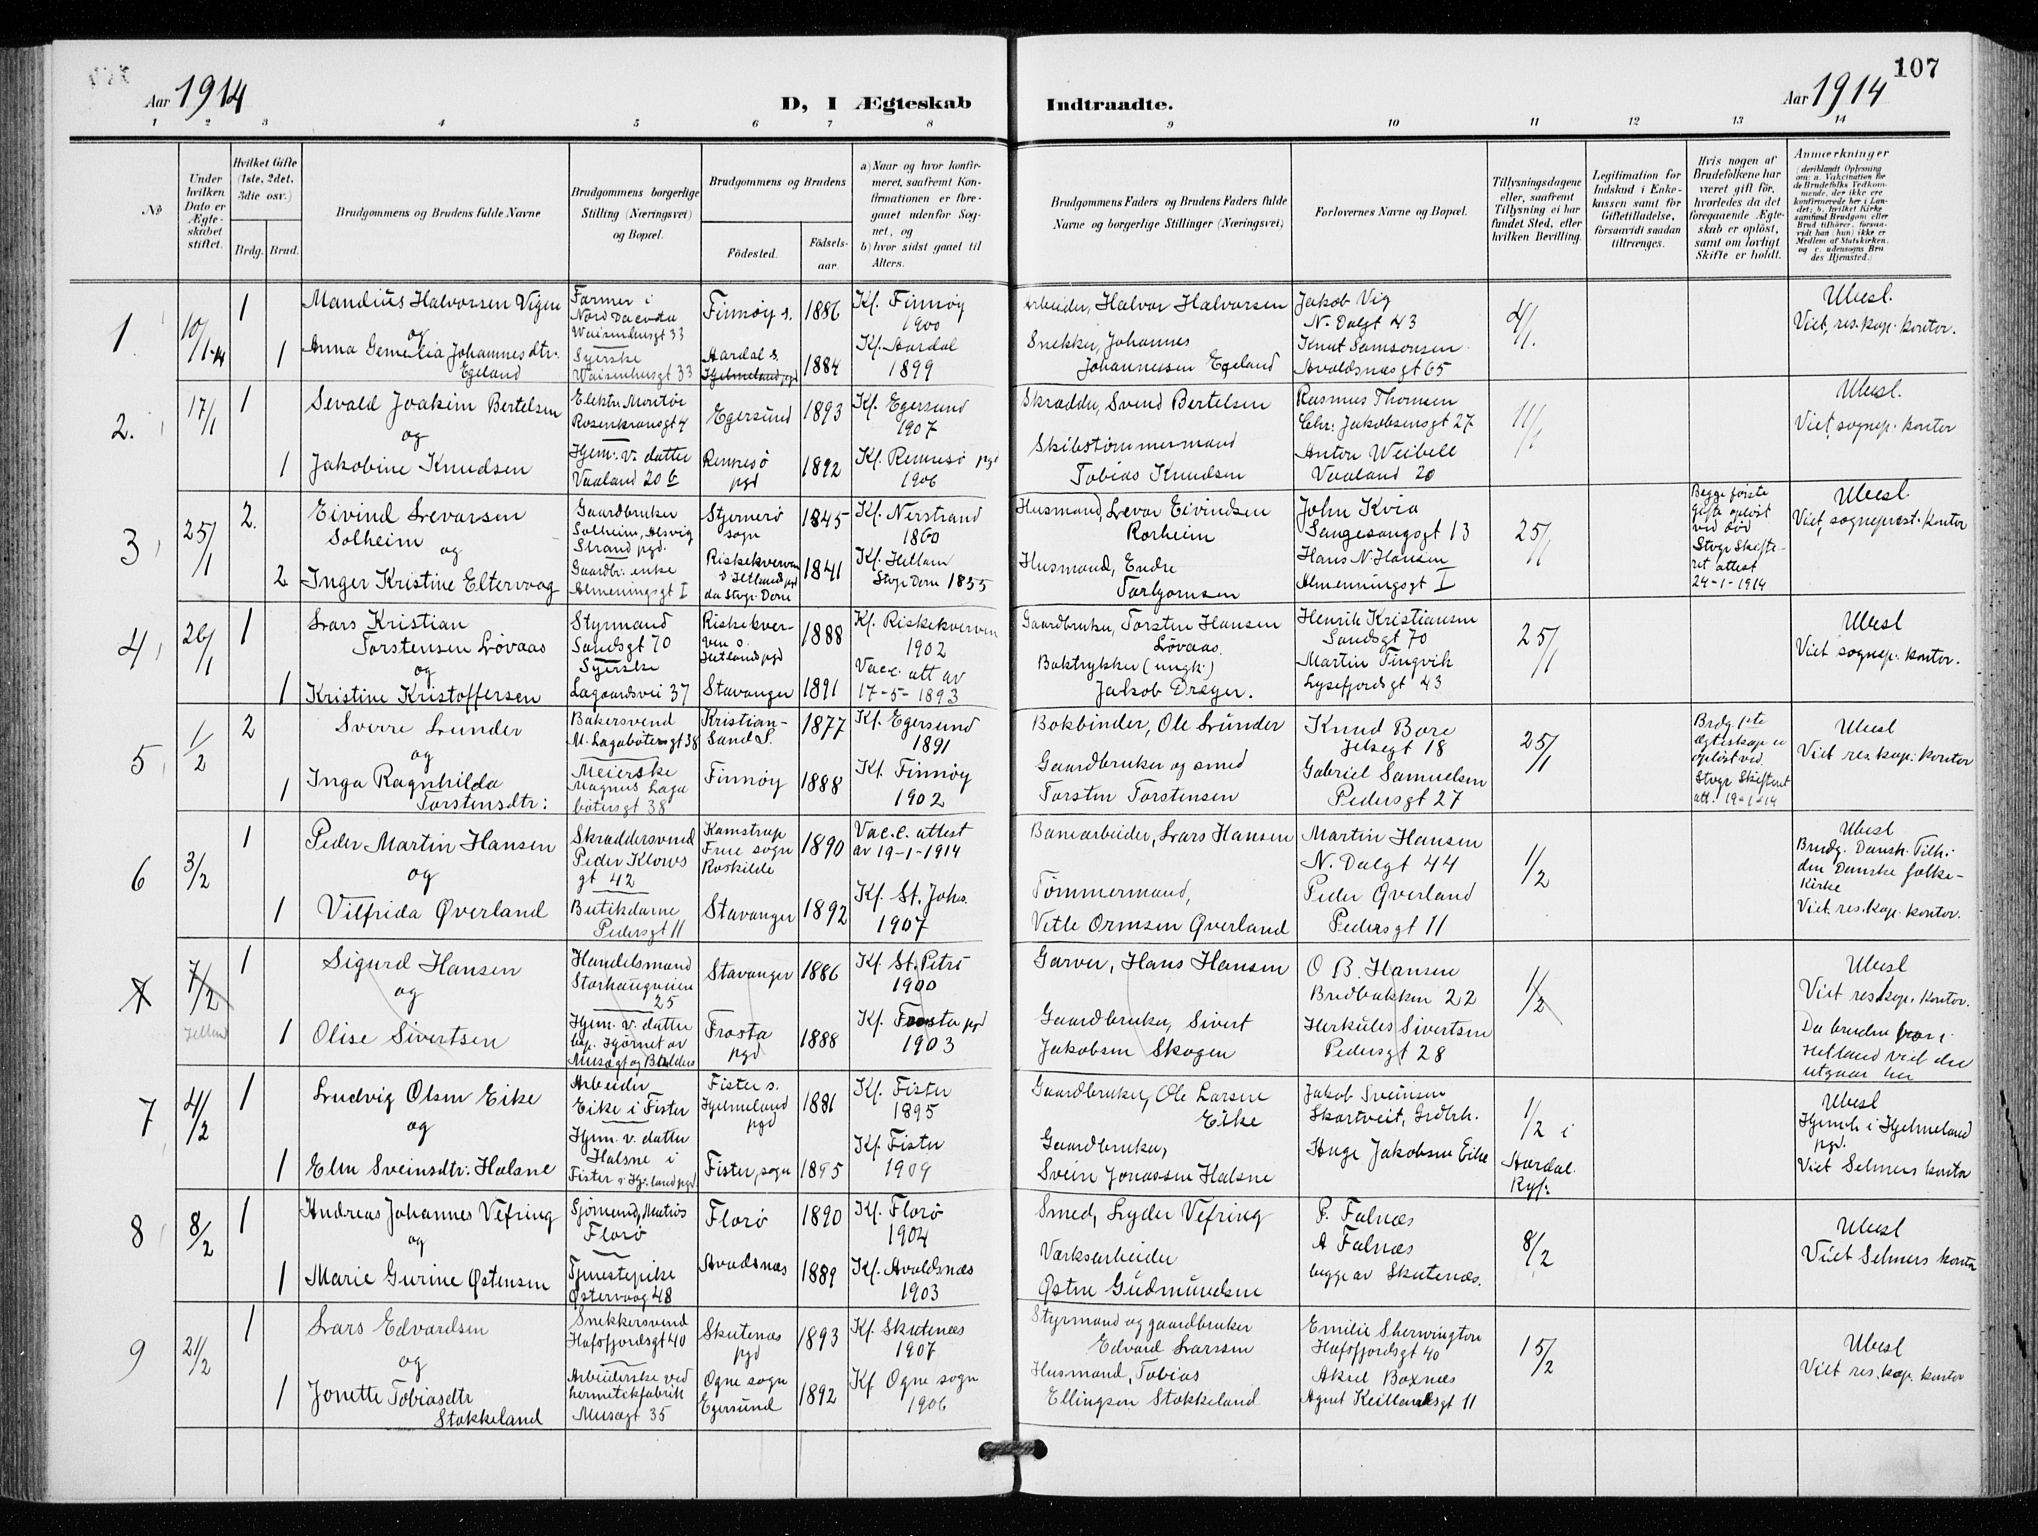 107
Aar 1914
D, I Ægteskab
Indtraadte.
Aar 1914
1 2 3 4 5 6 7 8 9 10 11 12 13 14
No
Under hvilken Dato er Ægteskabet stiftet.
Hvilket Gifte (1ste, 2det, 3die osv.)
Brdg. Brud.
Brudgommens og Brudens fulde Navne
Brudgommens borgerlige Stilling (Næringsvei) og Bopæl.
Brudgommens og Brudens
Fødested.
Fødselsaar.
a) Naar og hvor konfirmeret, saafremt Konfirmationen er foregaaet udenfor Sognet, og
b) hvor sidst gaaet til Alters.
Brudgommens Faders og Brudens Faders fulde Navne og borgerlige Stillinger (Næringsvei)
Forlovernes Navne og Bopæl.
Tillysningsdagene eller, saafremt Tillysning ei har fundet Sted, efter hvilken Bevilling.
Legitimation for Indskud i Enkekassen samt for Giftetilladelse, forsaavidt saadan tiltrænges.
Hvis nogen af Brudefolkene har været gift før, hvorledes da det foregaaende Ægteskab er opløst, samt om lovligt Skifte er holdt.
Anmærkninger
(deriblandt Oplysning om: a. Vakcination for de Brudefolks Vedkommende, der ikke ere konfirmerede her i Landet; b. hvilket Kirkesamfund Brudgom eller Brud tilhører, forsaavidt han (hun) ikke er Medlem af Statskirken, og c. udensogns Brudes Hjemsted.)
1 10/1-14 1 Mandius Halvorsen Vigen
og
1 Anna Gemelia Johannesdtr:
Egeland
Farmer i
Nord Dacoda
Waisenhusgt 33
Syerske
Waisenhusgt 33
Finnøy s. 1886 Kf. Finnøy
1900
Aardal s.
Hjelmeland pgd 1884 Kf. Aardal
1899
Arbeider, Halvor Halvorsen
Snekker, Johannes
Johannessen Egeland
Jakob Vig
N. Dalgt 43
Knut Samsonsen
Avaldsnæsgt 65
4/1.
Ubesl.
Viet, res. kap. kontor.
2. 17/1 1 Sevald Joakim Bertelsen
og
1 Jakobine Knudsen
Elektr. Montør
Rosenkransgt 4
Hjem. v. datter
Vaaland 20 b
Egersund 1893 Kf. Egersund
1907
Rennesø
pgd 1892 Kf. Rennesø pgd
1906
Skrædder, Svend Bertelsen
Skibstømmermand
Tobias Knudsen
Rasmus Thomsen
Chr: Jakobsensgt 27
Anton Weibell
Vaaland 20
11/1
Ubesl.
Viet, sognep. kontor
3 25/1 2. Eivind Levorsen
Solheim
og
2 Inger Kristine Eltervaag
Gaardbruker
Solheim, Alsvig
Strand pgd.
Gaardbr: enke
Almenningsgt I
Stjernerø
sogn 1845 Kf. Nerstrand
1860
Riskekverven
s Hetland pgd
da Stvgr. Dom 1841 Kf. Hetlan
Stvgr Dom 1855
Husmand, Levor Eivindsen
Rorheim
Husmand, Endre
Torbjørnsen
John Kvia
Sangesangsgt 13
Hans N. Hansen
Almenningsgt I
25/1
Begge første
gifte opløst
ved død
Stvgr Skifteret attest
24-1-1914
Ubesl.
Viet, sogneprest. kontor
4 26/1 1 Lars Kristian
Torstensen Løvaas
og
1 Kristine Kristoffersen
Styrmand
Sandsgt 70
Syerske
Lagaardsvei 37
Riskekverven s.
Hetland pgd 1888 Kf. Riskekverven
1902
Stavanger 1891 Vacc. att av
17-5-1893
Gaardbruker, Torsten Hansen
Løvaas.
Boktrykker (ungk.)
Jakob Dreyer.
Henrik Kristiansen
Sandsgt 70
Martin Tingvik
Lysefjordsgt 43
25/1
Ubesl
Viet sognep. kontor.
5 1/2 2 Sverre Lunder
og
1 Inga Ragnhilda
Torstensdtr:
Bakersvend
M. Lagabøtersgt 38
Meierske
Magnus Lagabøtersgt 38
Kristiansand S. 1877 Kf. Egersund
1891
Finnøy 1888 Kf. Finnøy
1902
Bokbinder, Ole Lunder
Gaardbruker og smed
Torsten Torstensen
Knud Bore
Jelsegt 18
Gabriel Samuelsen
Pedersgt 27
25/1
Brdg. 1ste
ægteskap er
opløst ved
Stvgr Skifteret
att. 19-1-14
Ubesl
Viet res. kap: kontor
6 3/2 1 Peder Martin Hansen
og
1 Vilfrida Øverland
Skræddersvend
Peder Klows
gt 42
Butikdame
Pedersgt 11
Kamstrup
Frue sogn
Roskilde 1890 Vacc. attest
av 19-1-1914
Stavanger 1892 Kf. St. Johs.
1907
Banearbeider, Lars Hansen
Tømmermand,
Vetle Ormsen Øverland
Martin Hansen
N. Dalgt 44
Peder Øverland
Pedersgt 11
1/2
Ubesl
Brudg. Dansk. Tilh:
den Danske folkekirke
Viet. res. kap. kontor.
7 7/2 1 Sigurd Hansen
og
1 Olise Sivertsen
Handelsmand
Storhaugveien
25
Hjem. v. datter
Stavanger 1886 Kf. St. Petri
1900
Frosta
pgd 1888 Kf. Frosta pgd
1903
Garver, Hans Hansen
Gaardbruker, Sivert
Jakobsen Skogen
O B. Hansen
Bredbakken 22
Herkules Sivertsen
Pedersgt 28
1/2
Ubesl
Viet res. kap. kontor.
Da bruden bor i
Hetland viet der
utgaar her
7 4/2 1 Ludvig Olsen Eike
og
1 Elen Sveinsdtr: Halsne
Arbeider
Eike i Fister
Hjem. v. datter
Halsne i
Fister s Hj:land pgd
Fister s.
Hjelmeland
pgd 1881 Kf. Fister
1895
Fister, sogn 1895 Kf. Fister
1909
Gaardbruker, Ole Larsen
Eike
Gaardbruker,
Svein Jonassen Halsne
Jakob Sveinsen
Skartveit, Grdbr.
Aage Jakobsen Eike
1/2 i
Aardal.
Ryf:
Ubesl
Hjemh i Hjelmeland
pgd.
Viet Selmers kontor
8 8/2 1 Andreas Johannes Vefring
og
1 Marie Gurine Østensen
Sjømand, Matros
Florø
Tjenestepike
Østervaag 48
Florø 1890 Kf. Florø
1904
Avadsnæs 1889 Kf. Avaldsnæs
1903
Smed, Lyder Vefring
Værksarbeider
Østen Gudmundsen
P. Falnæs
A Falnæs
begge av Skutenæs.
8/2
Ubesl
Viet Selmers kontor
9 21/2 1 Lars Edvardsen
og
1 Jonette Tobiasdtr
Stokkeland
Snekkersvend
Hafsfjordsgt 40
Arbeiderske ved
hermetikfabrik
Musægt 35
Skutenæs
pgd 1893 Kf. Skutenæs
1907
Ogne sogn
Egersund 1892 Kf Ogne sogn
1906
Styrmand og gaardbruker
Edvard Larsen
Husmand, Tobias
Ellingsen Stokkeland
Emilie Sherwington
Hafsfjordsgt 40
Aksel Boxnæs
Agent Keillandsgt 11
15/2
Ubesl
Viet res. kap. kontor